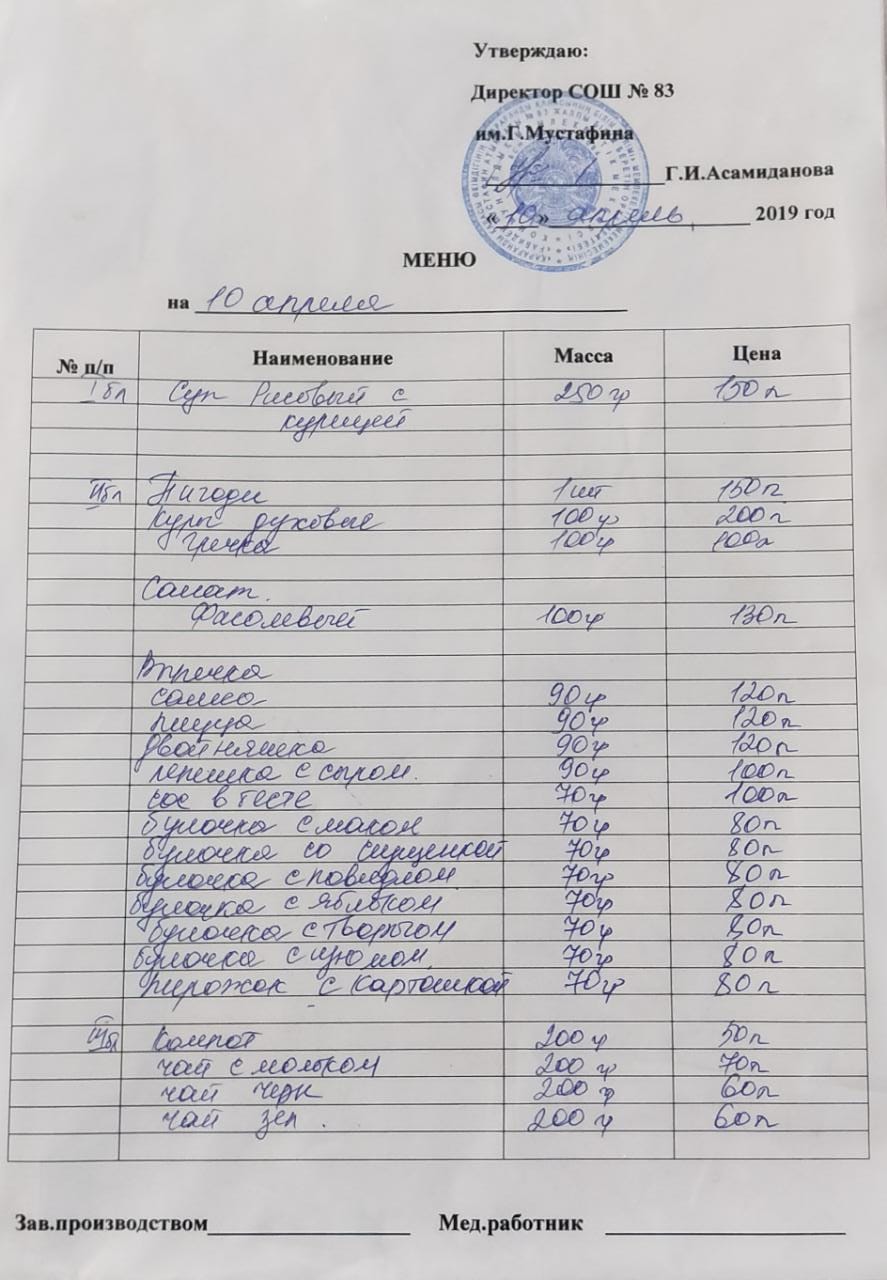 Утверждаю:
Директор СОШ № 83
им.Г.Мустафина
Г.И.Асамиданова
« 10 » апрель 2019 год
МЕНЮ
на 10 апреля
№ п/п Наименование Масса Цена
I бл Суп Рисовый с 250 гр 150 п
курицей
II бл Пигоди 1 шт 150 п
Куры духовые 100 гр 200 п
гречка 100 гр 100 п
Салат.
Фасолевый 100 гр 130 п
Впречка
самса 90 гр 120 п
пицца 90 гр 120 п
двойняшка 90 гр 120 п
лепешка с сыром. 90 гр 100 п
сос в тесте 70 гр 100 п
булочка с маком 70 гр 80 п
булочка со сгущенкой 70 гр 80 п
булочка с повидлом 70 гр 80 п
булочка с яблоком 70 гр 80 п
булочка с творогом 70 гр 80 п
булочка с изюмом 70 гр 80 п
пирожок с картошкой 70 гр 80 п
III бл Компот 200 гр 50 п
чай с молоком 200 гр 70 п
чай черн 200 гр 60 п
чай зел . 200 гр 60 п
Зав.производством Мед.работник